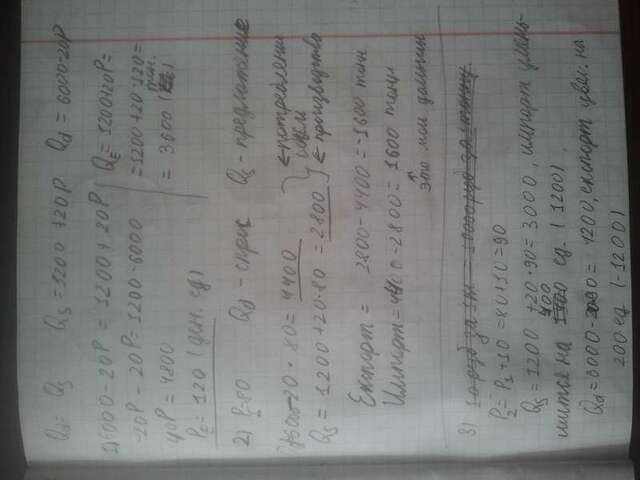 Qd = Qs Qs = 1200 + 20P Qd = 6000-20P
1) 6000 - 20P = 1200 + 20P
-20P - 20P = 1200 - 6000
40P = 4800
PE = 120 (ден. ед)
QE = 1200+20P =
= 1200 + 20·120 =
= 3600 (тон.)
2) P=80 Qd - спрос Qs - предложение
6000-20·80 = 4400 ← потребление
Qs = 1200+20·80 = 2800 ← производство
соли
Експорт = 2800 - 4400 = -1600 тонн
Импорт = 4400 - 2800 = 1600 тонн
↑
это мои домыслы
3)
P2 = P1 + 10 = 80+10 = 90
Qs = 1200 + 20·90 = 3000, импорт умень-
шится на 400 ед. (1200)
Qd = 6000-20·90 = 4200, експорт увел. на
200 ед (-1200)